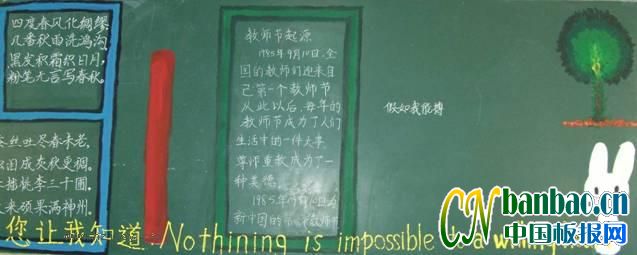 四度春风化绸缪,
几番秋雨洗鸿沟,
黑发积霜织日月,
粉笔无言写春秋。
丝吐尽春未老,
成灰秋更稠。
桃李三十圃,
来硕果满神州.
教师节起源
1985年9月10日,全
国的教师们迎来自
己第一个教师节
从此以后,每年的
教师节成为了人们
生活中的一件大事.
尊师重教成为了一
种美德.
1985年9月10日为
新中国的第一个教师节
假如我能搏
您让我知道:Nothining is impossible to a willing
CN banbao.cn
中国板报网